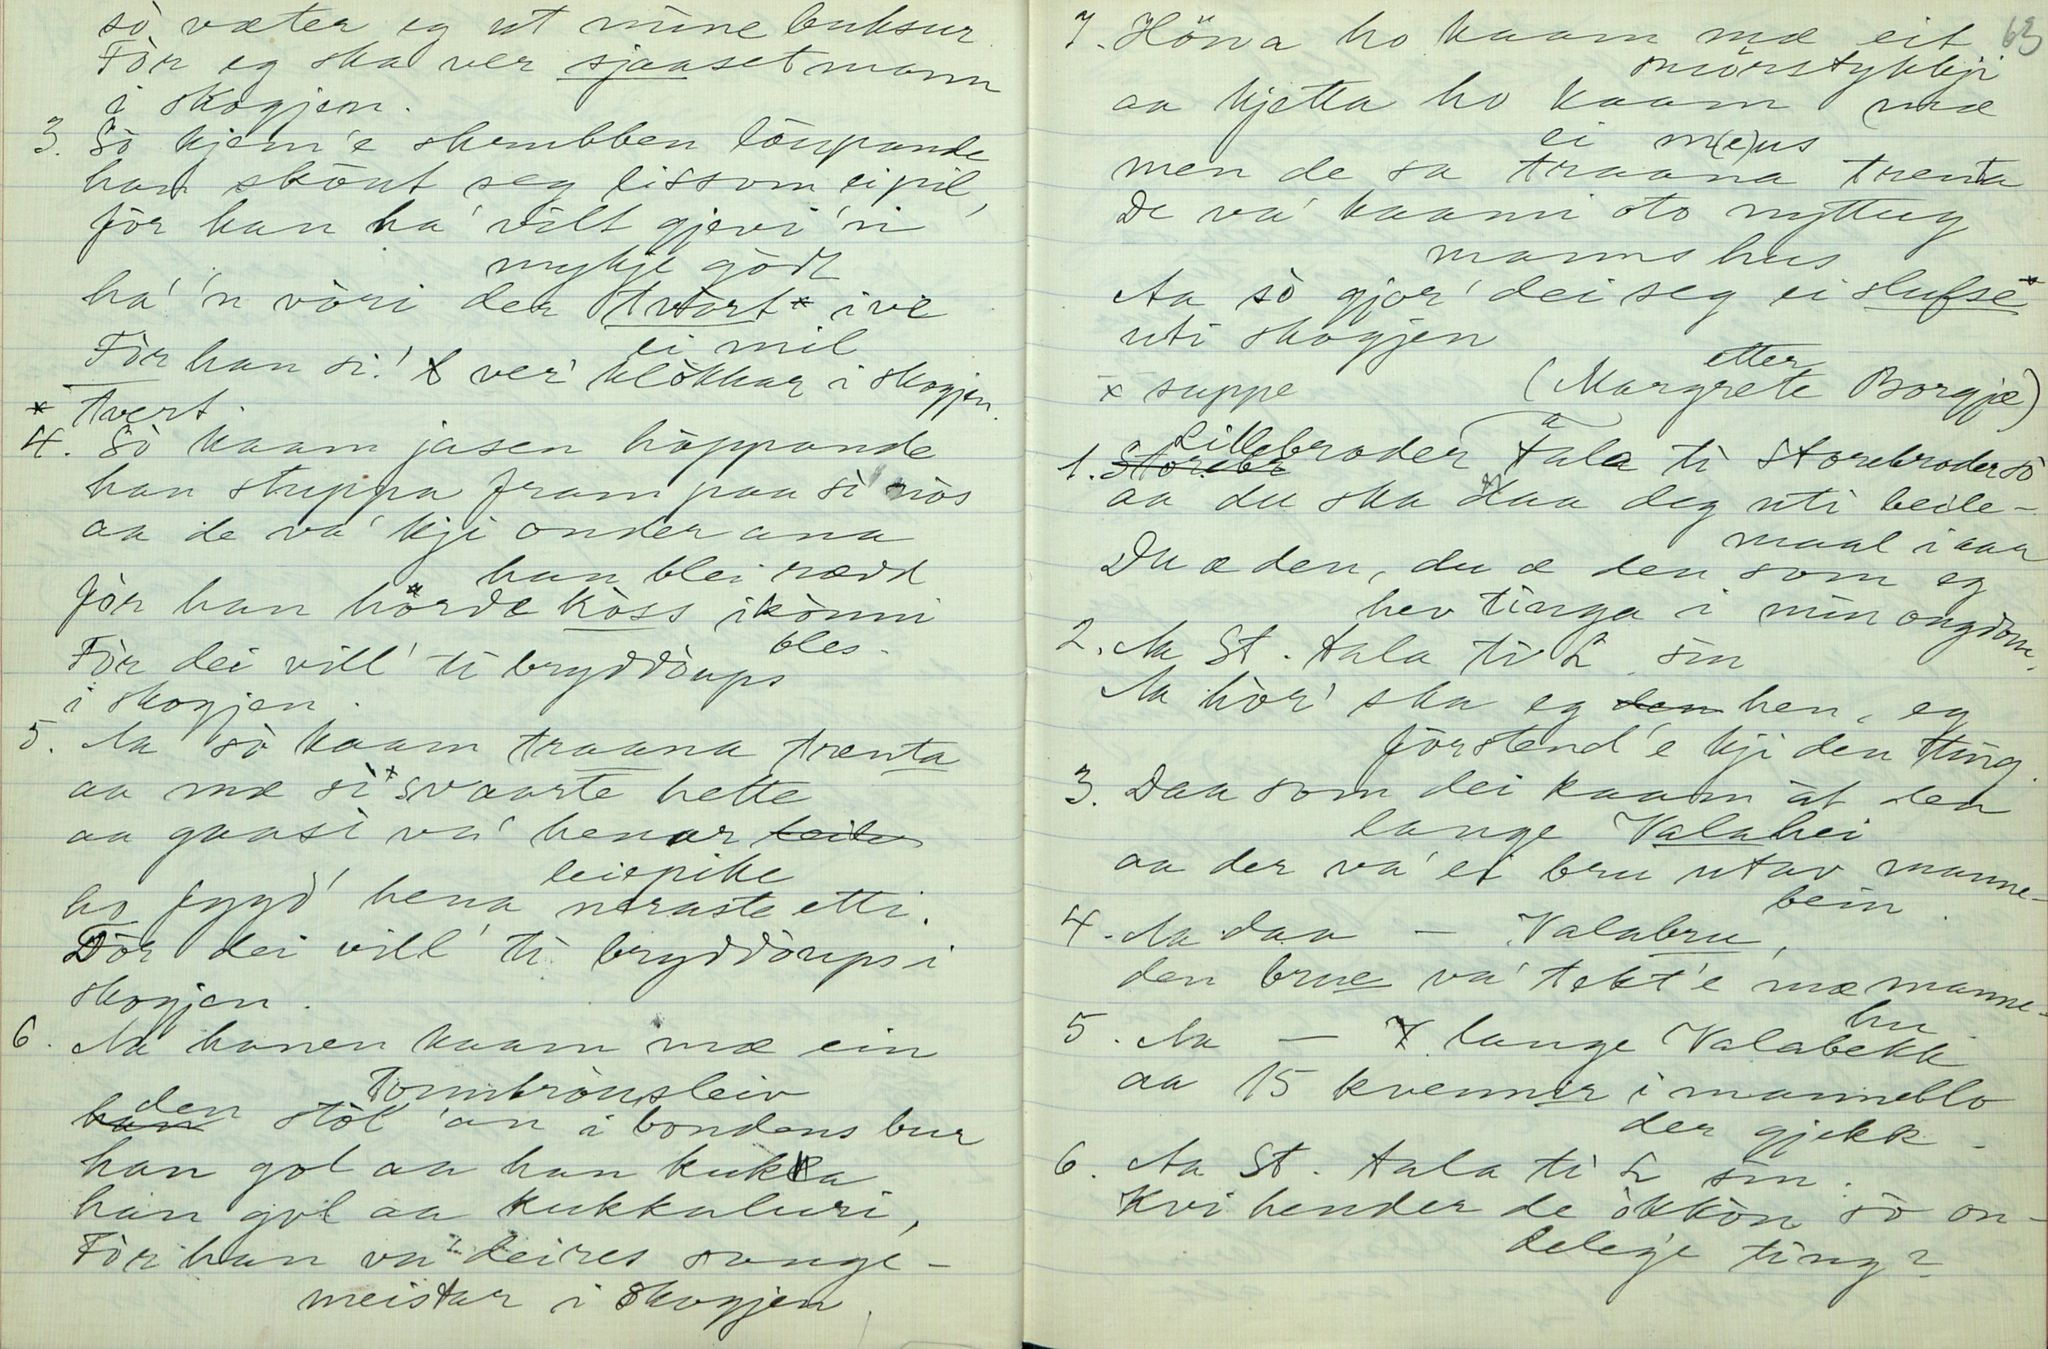 sò væter eg ut mine buksur
Fòr eg ska ver sjaaset mann
i skogjen.
3. Sò kjem'e skrubben lòupande
han skòut seg lissom ei pil,
fòr han ha' vilt gjevi 'n
mykje gòdt
ha' 'n vòri der tvòrt* ive
ei mil
Fòr han si! ver' klòkkar i skogjen.
* tvert.
4. Sò kaam jasen hòppande
han stuppa fram paa si nòs
aa de va' kji onder ana
han blei rædd
fòr han hòrde kòss ikònni
bles.
Fòr dei vill' ti bryddòups
i skogjen.
5. Aa sò kaam traana trenta
aa mæ si svaarte hette
aa gaasi va' henar
leiepike
ho fygd' hena neraste etti.
Fòr dei vill' ti bryddòups i
skogjen.
6. Aa hanen kaam mæ ein
tonnbròusleiv
den stòl 'an i bondens bur
han gol aa han kukka
han gol aa kukkaluri,
Fòr han va' deires sange-
meistar i skogjen.
63
7. Höna ho kaam mæ eit
smörstykkji
aa kjetta ho kaam mæ
ei m(e)us
men de sa traana trenta
De va' kaami sto nyttug
manns hus
Aa sò gjor' dei seg ei slufse*
uti skogjen
x suppe
(etter
Margrete Borgjé)
1. Storebr Lillebroder tala ti Storebroder sò
aa du ska daa deg uti beile-
maal i aar
Du æ den, du æ den som eg
hev tinga i min ongdom.
2. Aa St. tala ti L sin
Aa hòr' ska eg den hen, eg
fòrstend'e kji den ting.
3. Daa som dei kaam åt den
lange Valahei
aa der va' ei bru utav manne-
bein.
4. Aa daa — Valabru,
den brue va' tekt'e mæ manne-
hu
5. Aa — lange Valabekk
aa 15 kvenner i manneblo
der gjekk.
6. Aa St. tala ti L sin.
Kvi hender de òkkòn sò on-
delege ting?